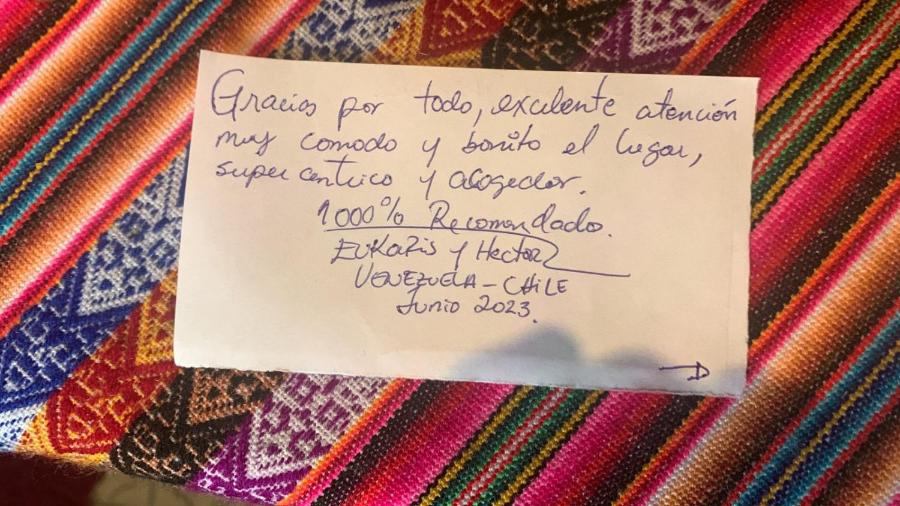 Gracias por todo, excelente atención
muy comodo y bonito el lugar,
super centrico y acogedor.
1000% Recomendado.
Eukaris y Hector
VENEZUELA - CHILE
Junio 2023.